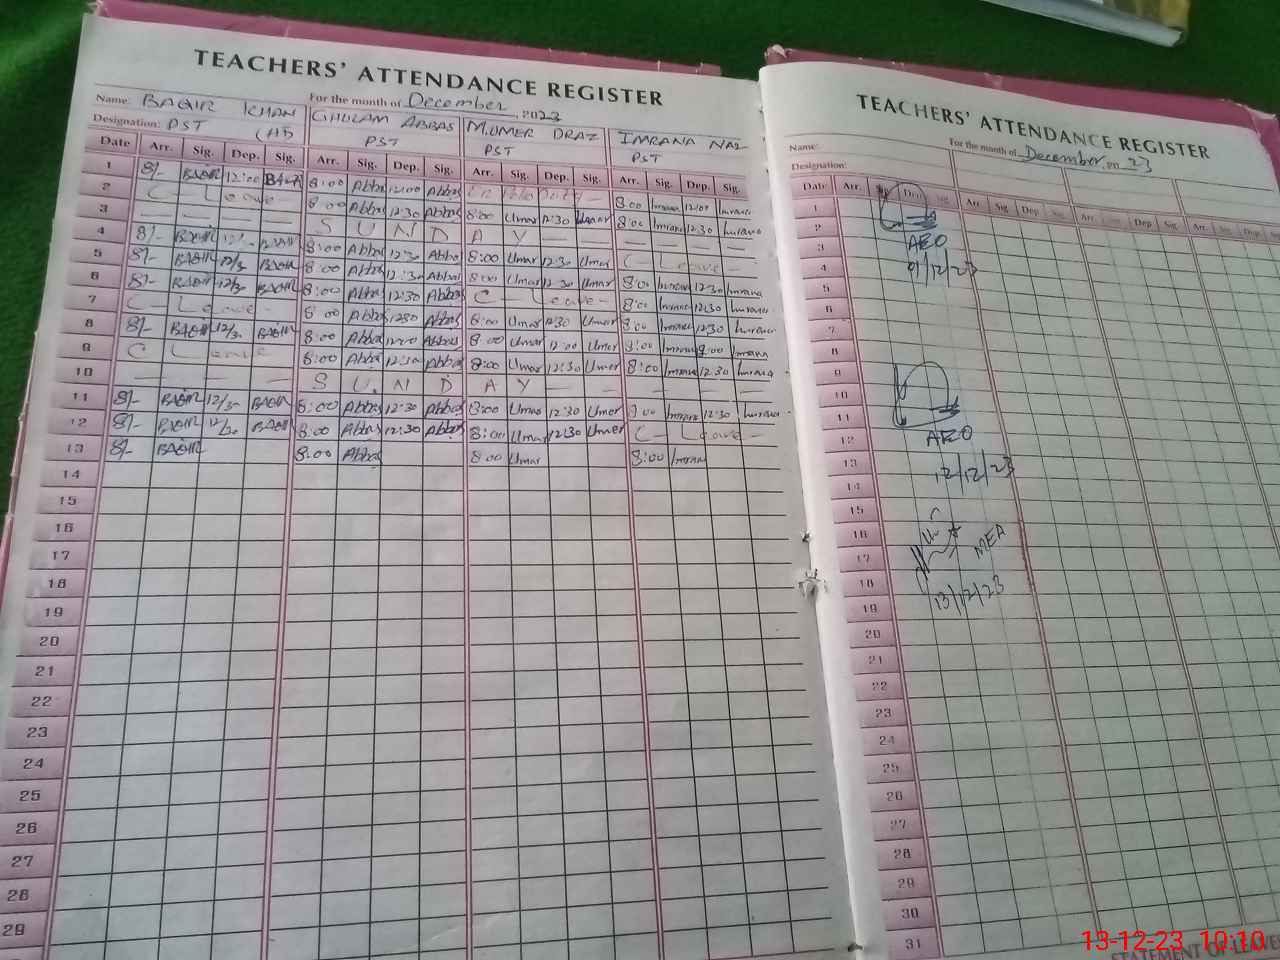 TEACHERS' ATTENDANCE REGISTER
Name: BAQIR KHAN
For the month of December, 2023
GHULAM ABBAS
M.UMER DRAZ
IMRANA NAZ
Designation: PST
PST
PST
PST
Date Arr. Sig. Dep. Sig. Arr. Sig. Dep. Sig. Arr. Sig. Dep. Sig. Arr. Sig. Dep. Sig.
1 8/- BAQIR 12:00 BAQIR 8:00 Abbas 12:00 Abbas 8:00 Imrana 12:00 Imrana
2 C – Leave – 8:00 Abbas 12:30 Abbas 8:00 Umar 12:30 Umar 8:00 Imrana 12:30 Imrana
3 — — — — S U N D A Y — — — — — —
4 8/- BAQIR BAQIR 8:00 Abbas 12:30 Abbas 8:00 Umar 12:30 Umar C – Leave –
5 8/- BAQIR 12/30 BAQIR 8:00 Abbas 12:30 Abbas 8:00 Umar 12:30 Umar 8:00 Imrana 12:30 Imrana
6 8/- BAQIR 12/30 BAQIR 8:00 Abbas 12:30 Abbas C – Leave – 8:00 Imrana 12:30 Imrana
7 C – Leave – 8:00 Abbas 12:30 Abbas 8:00 Umar 12:30 Umar 8:00 Imrana 12:30 Imrana
8 8/- BAQIR 12/30 BAQIR 8:00 Abbas 12:00 Abbas 8:00 Umar 12:00 Umar 8:00 Imrana 8:00 Imrana
9 C Leave 8:00 Abbas 12:30 Abbas 8:00 Umar 12:30 Umar 8:00 Imrana 12:30 Imrana
10 — — — — S U N D A Y — — — — — —
11 8/- BAQIR 12/30 BAQIR 8:00 Abbas 12:30 Abbas 8:00 Umar 12:30 Umar 8:00 Imrana 12:30 Imrana
12 8/- BAQIR 12/30 BAQIR 8:00 Abbas 12:30 Abbas 8:00 Umar 12:30 Umer C – Leave –
13 8/- BAQIR 8:00 Abbas 8:00 Umar 8:00 Imrana
14
15
16
17
18
19
20
21
22
23
24
25
26
27
28
29
TEACHERS' ATTENDANCE REGISTER
Name:
For the month of December, 2023
Designation:
Date Arr. Dep. Sig. Arr Sig. Dep Sig. Arr. Sig. Dep Sig. Arr. Sig. Dep. Sig.
1
2
3 AEO
4 01/12/23
5
6
7
8
9
10
11
12 AEO
13 12/12/23
14
15
16
17 MEA
18
19 13/12/23
20
21
22
23
24
25
26
27
28
29
30
31
STATEMENT OF LEAVES
13-12-23 10:10